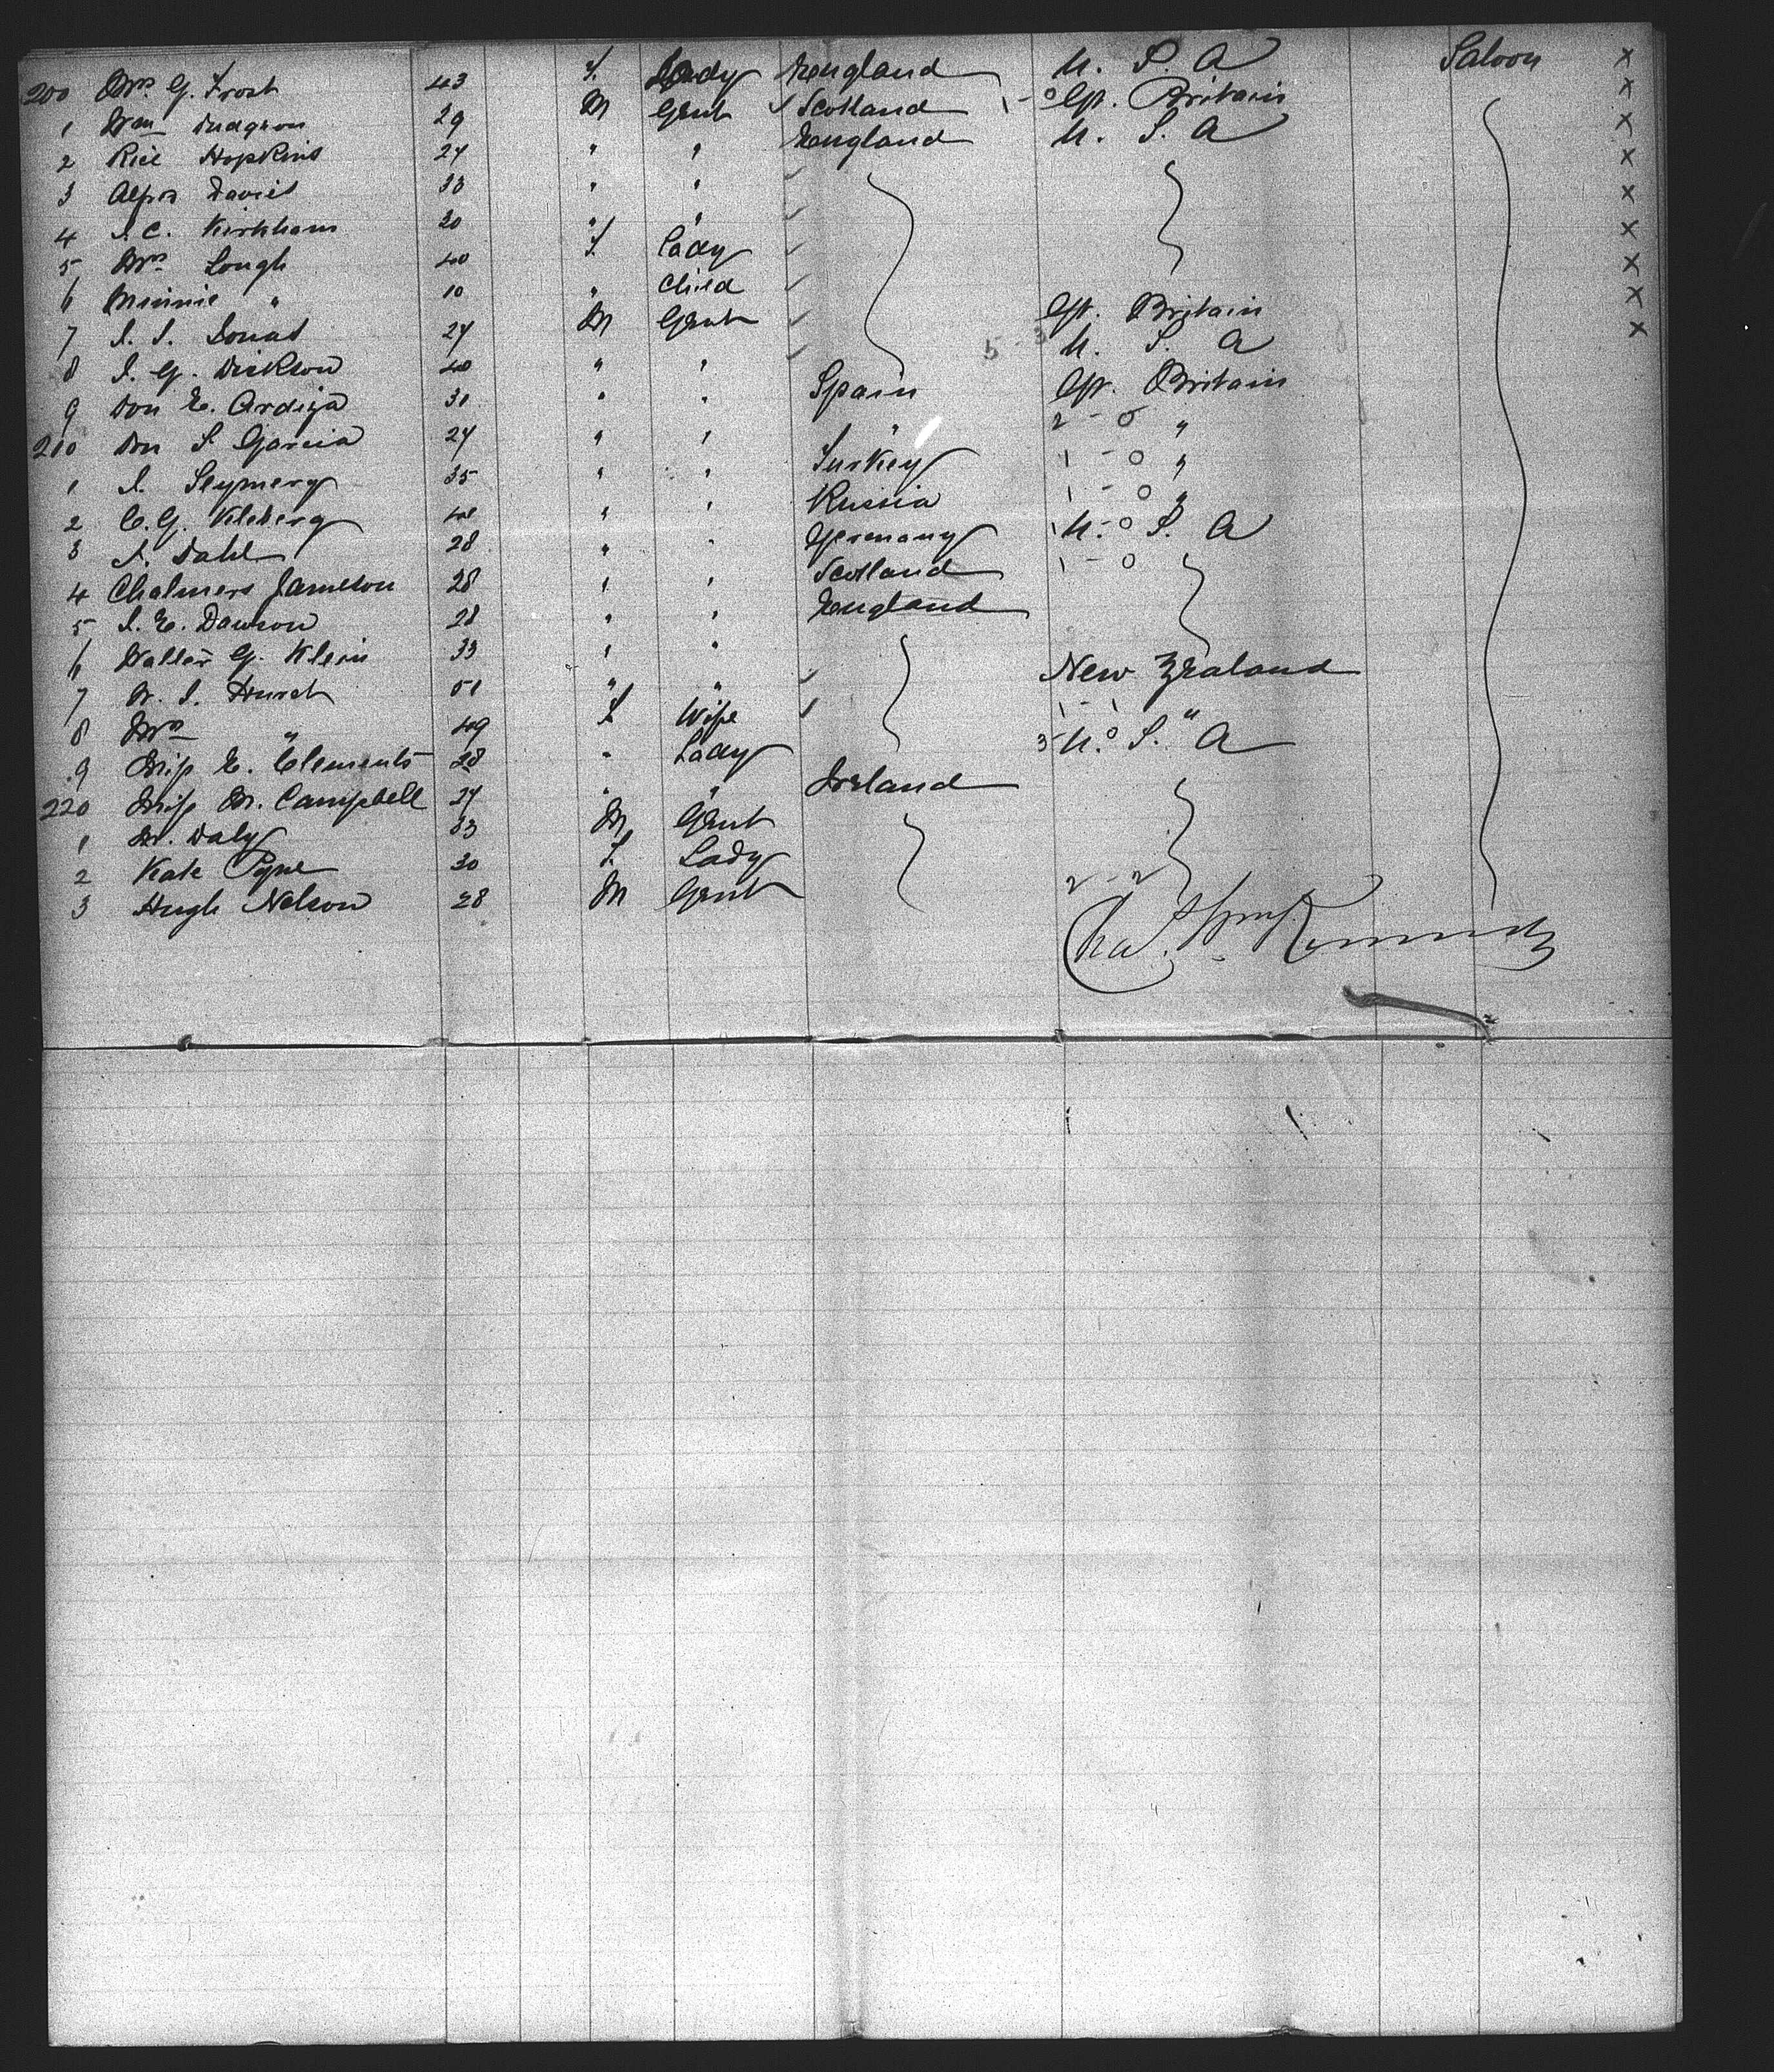 200 Mrs. G. Frost 43 F. Lady England U. S. A Saloon x
1 Wm Dudgeon 29 M Gent Scotland 1 - 0 Gt. Britain x
2 Rice Hopkins 24 " " England U. S. A x
3 Alfred Davies 33 " " x
4 J. C. Kirkham 20 " " x
5 Mrs Lough 40 F. Lady x
6 Minnie " 10 " Child x
7 J. S. 24 M Gent Gt. Britain x
8 J. G. Dickson 40 " " 5 - 3 U. S. A x
9 Don E. Ardiza 31 " " Spain Gt. Britain
210 Don S. Garcia 24 " " " 2 - 0 "
1 J. 35 " " Turkey 1 - 0 "
2 C. G. Kleberg " " Russia 1 - 0 "
3 A. Dahl 28 " " Germany 1 - 0 U. S. A
4 Chalmers Jameson 28 " " Scotland 1 - 0
5 J. E. Dawson 28 " " England
6 Walter G. Klein 33 " "
7 W. J. Hurst 51 " " New Zealand
8 Mrs " 49 F Wife 1 - 1 "
9 Miss E. Clements 28 " Lady 3 - 0 U. S. A
220 Miss M. Campbell 24 " " Ireland
1 M. Daly 33 M Gent
2 Kate Pyne 30 F. Lady
3 Hugh Nelson 28 M Gent 2 - 2